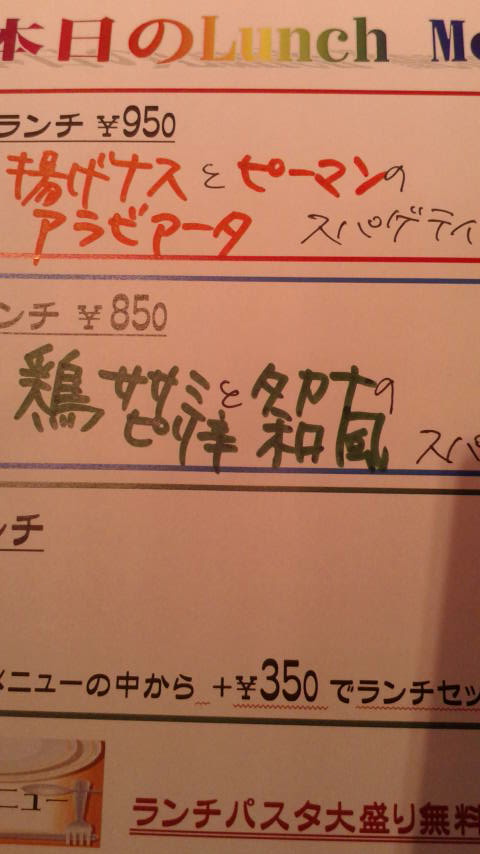 本日のLunch Me
ランチ ¥950
揚げナスとピーマンの
アラビアータ スパゲティ
ンチ ¥850
鶏ササミとタカナの
ピリ辛 和風 スパ
ンチ
メニューの中から +¥350 でランチセッ
ニュー
ランチパスタ大盛り無料